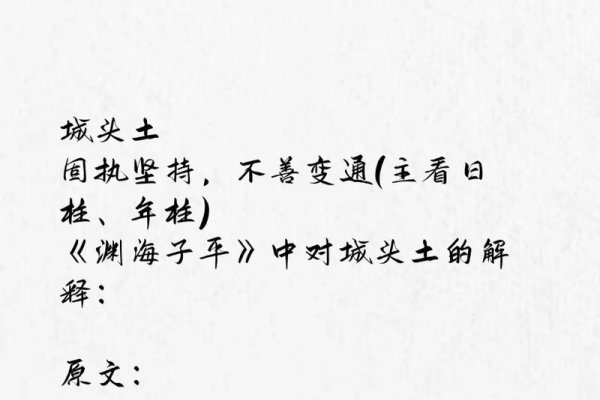 城头土
固执坚持，不善变通(主看日
柱、年柱)
《渊海子平》中对城头土的解
释：
原文：